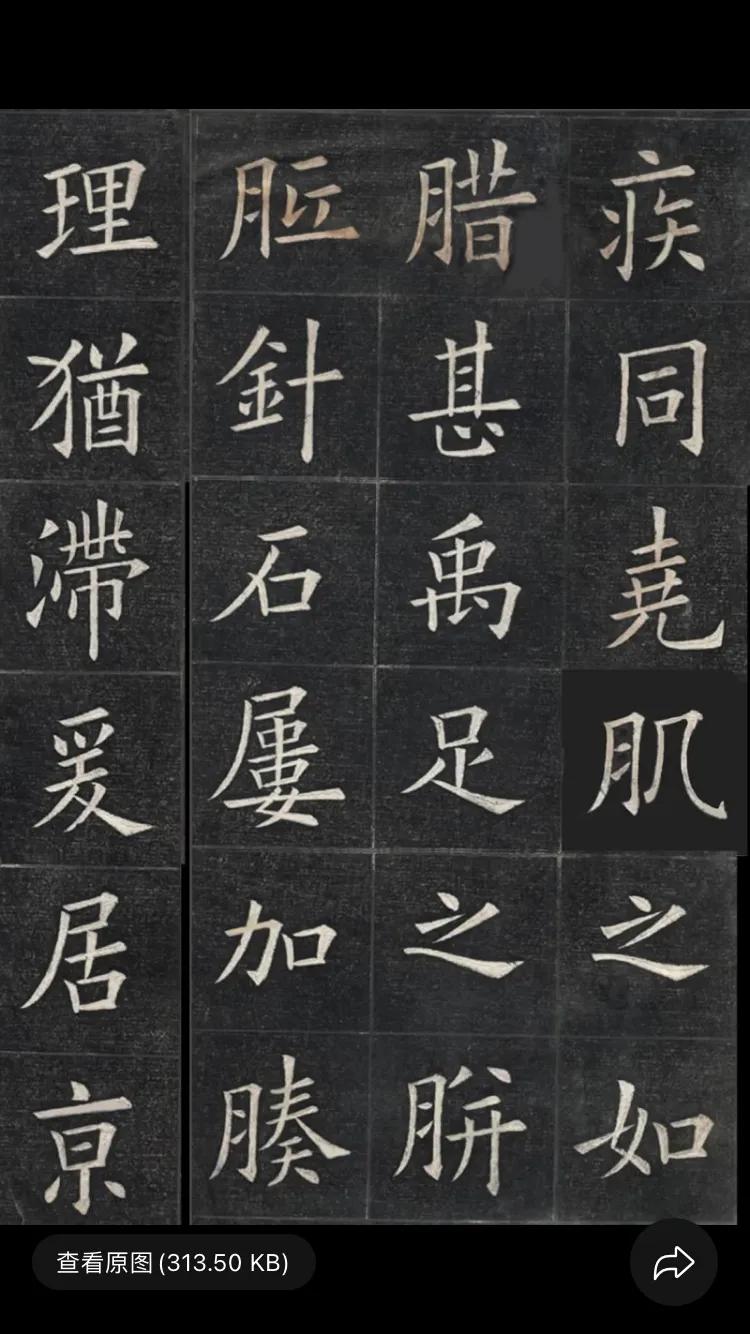 疾同堯肌之如
腊甚禹足之胼
胝針石屢加腠
理猶滯爰居京
查看原图 (313.50 KB)